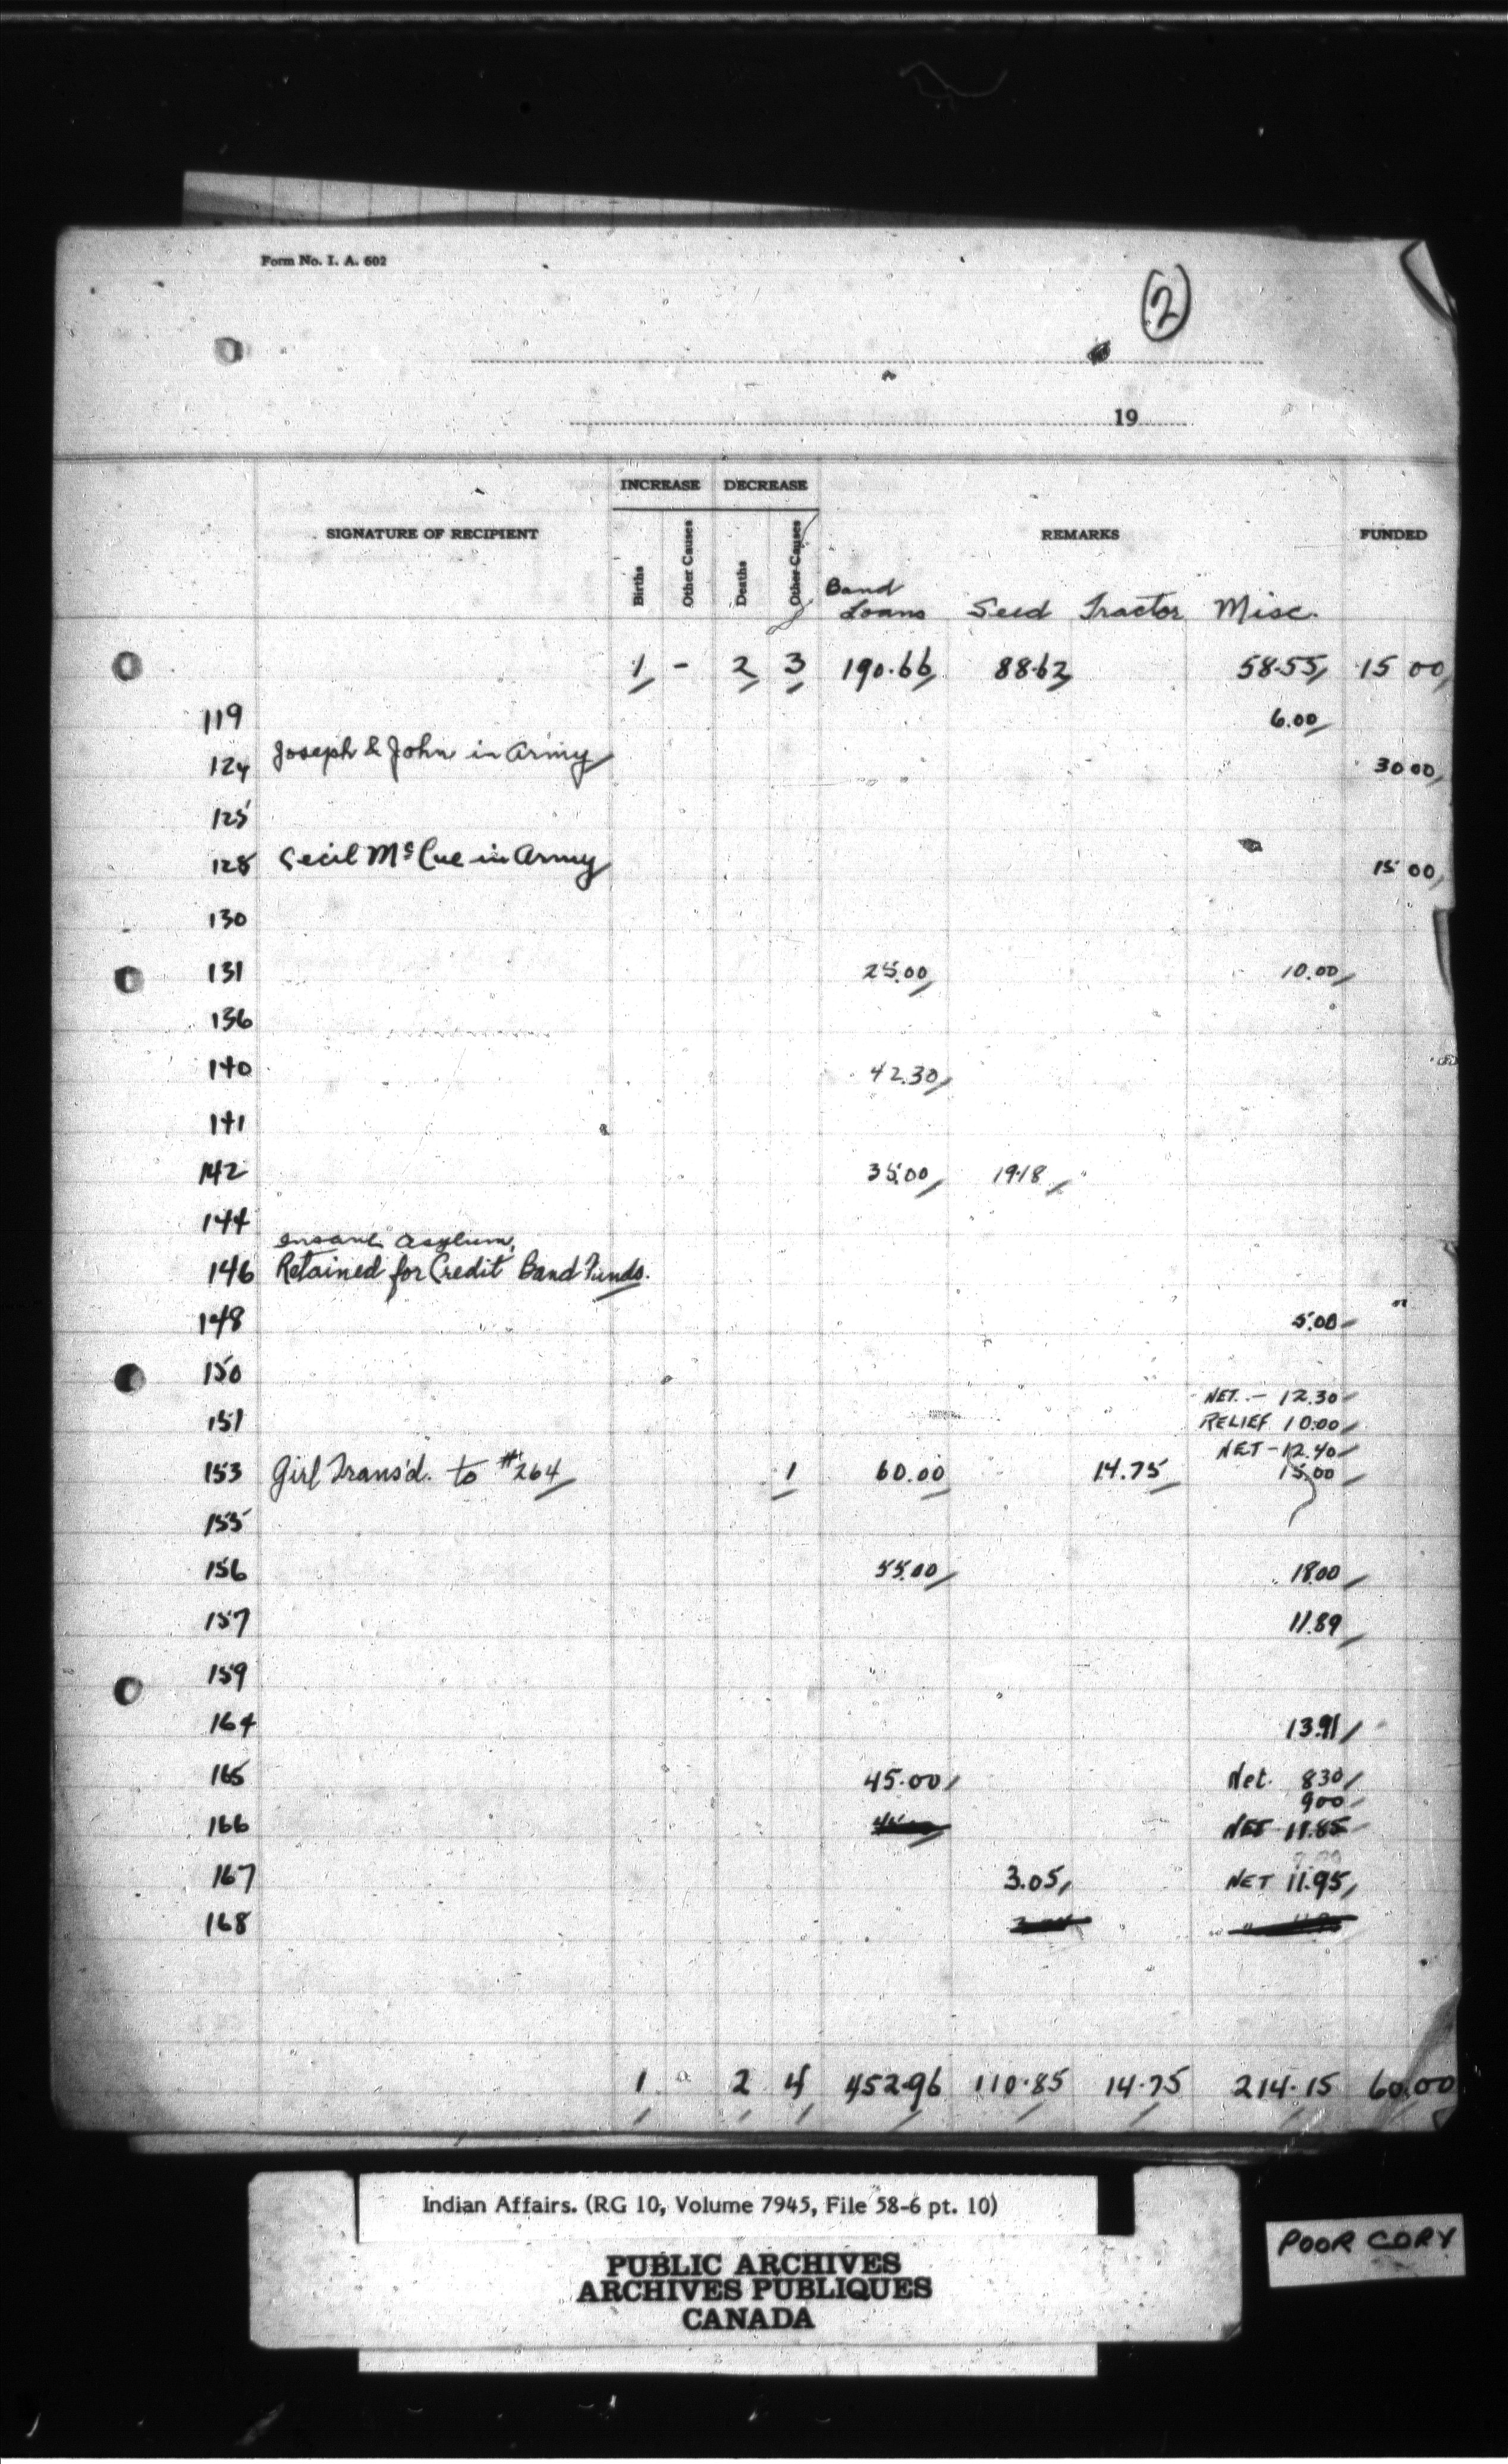 Form No. I. A. 602
2
19
INCREASE DECREASE
SIGNATURE OF RECIPIENT Births Other Causes Deaths Other Causes REMARKS FUNDED
Band Loans Seed Tractor Misc.
1 - 2 3 190.66 88.62 58.55 15 00
119 6.00
124 Joseph & John in Army 30 00
125
128 Cecil McCue in Army 15 00
130
131 25.00 10.00
136
140 42.30
141
142 35.00 19.18
144
Insane Asylum,
146 Retained for Credit Band Funds.
148 5.00
150
NET. - 12.30
151 RELIEF 10.00
NET - 12.40
153 Girl Trans'd. to #264 1 60.00 14.75 15.00
155
156 55.00 18.00
157 11.89
159
164 13.91
165 45.00 Net. 8 30
9 00
166 NET 11.85
167 3.05 NET 11.95
168
1 2 4 452.96 110.85 14.75 214.15 60.00
Indian Affairs. (RG 10, Volume 7945, File 58-6 pt. 10)
PUBLIC ARCHIVES
ARCHIVES PUBLIQUES
CANADA
POOR COPY